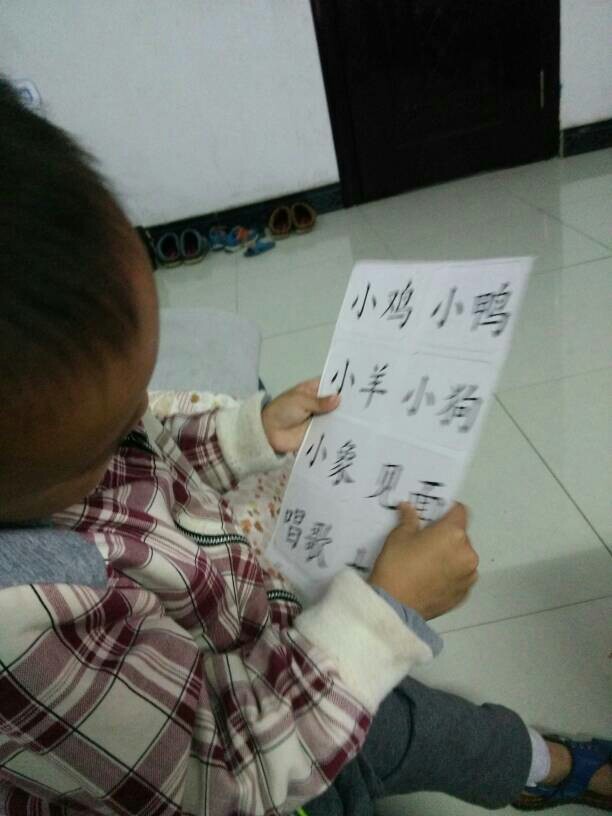 小鸡 小鸭
小羊 小狗
小象 见面
唱歌